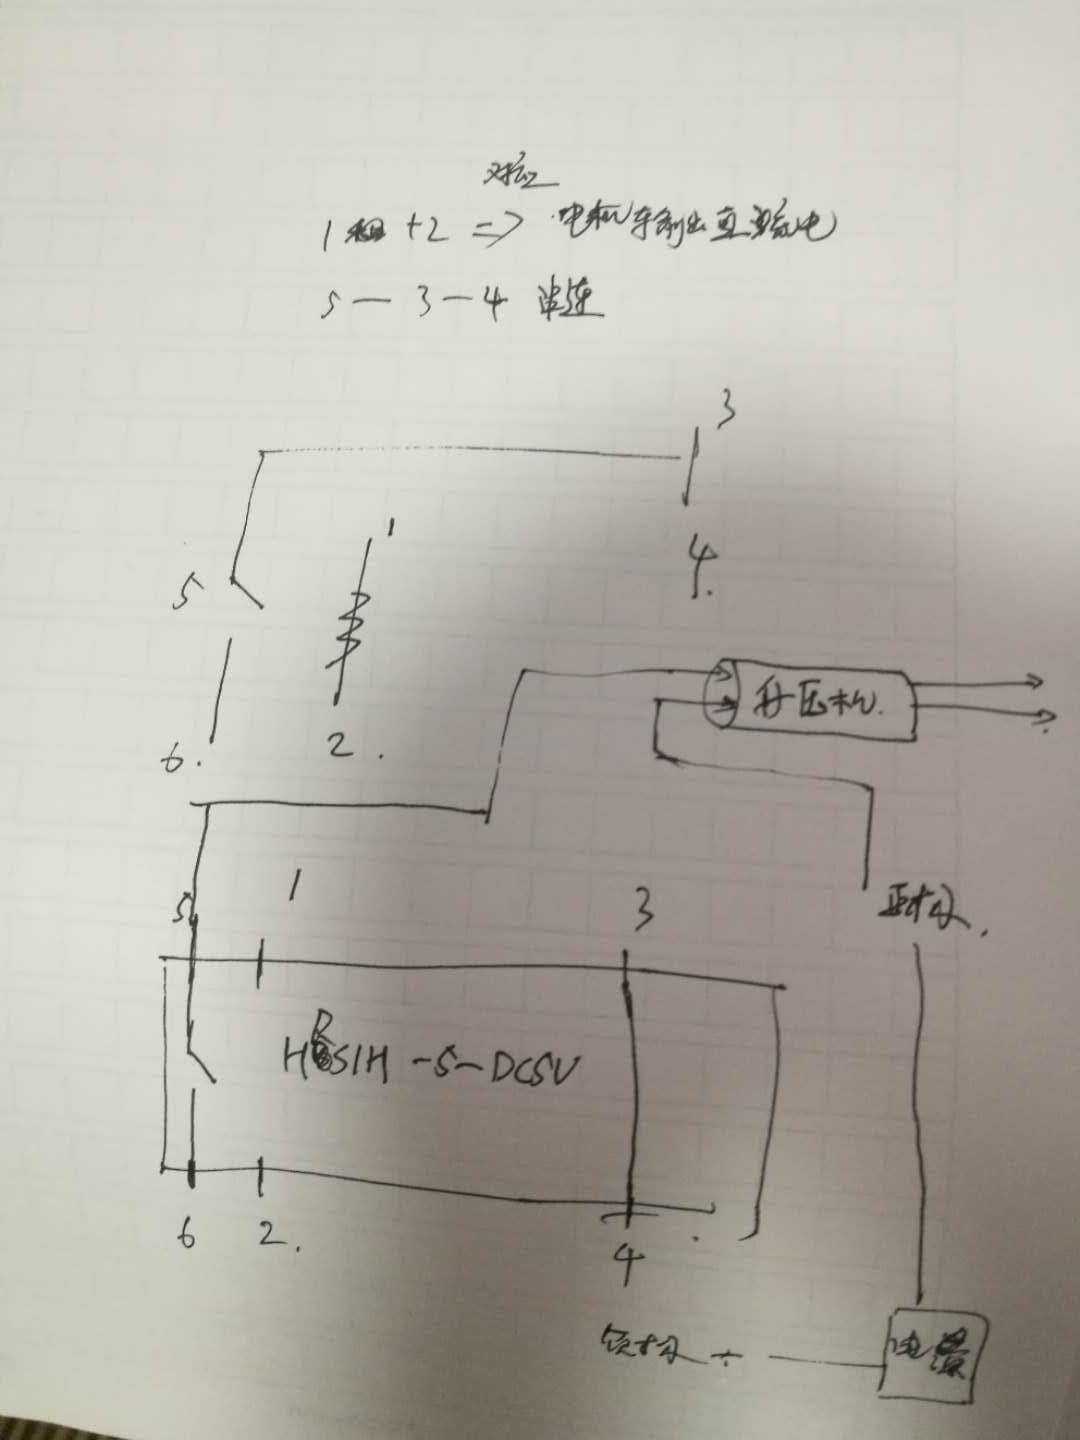 对应
1 +2 => 电机车输出直流电
5 — 3 — 4 串连
3
1
4.
5
2.
6.
升压机.
5
1
3
正极.
HRS1H -S-DC5V
6
2.
4
负极 -
电